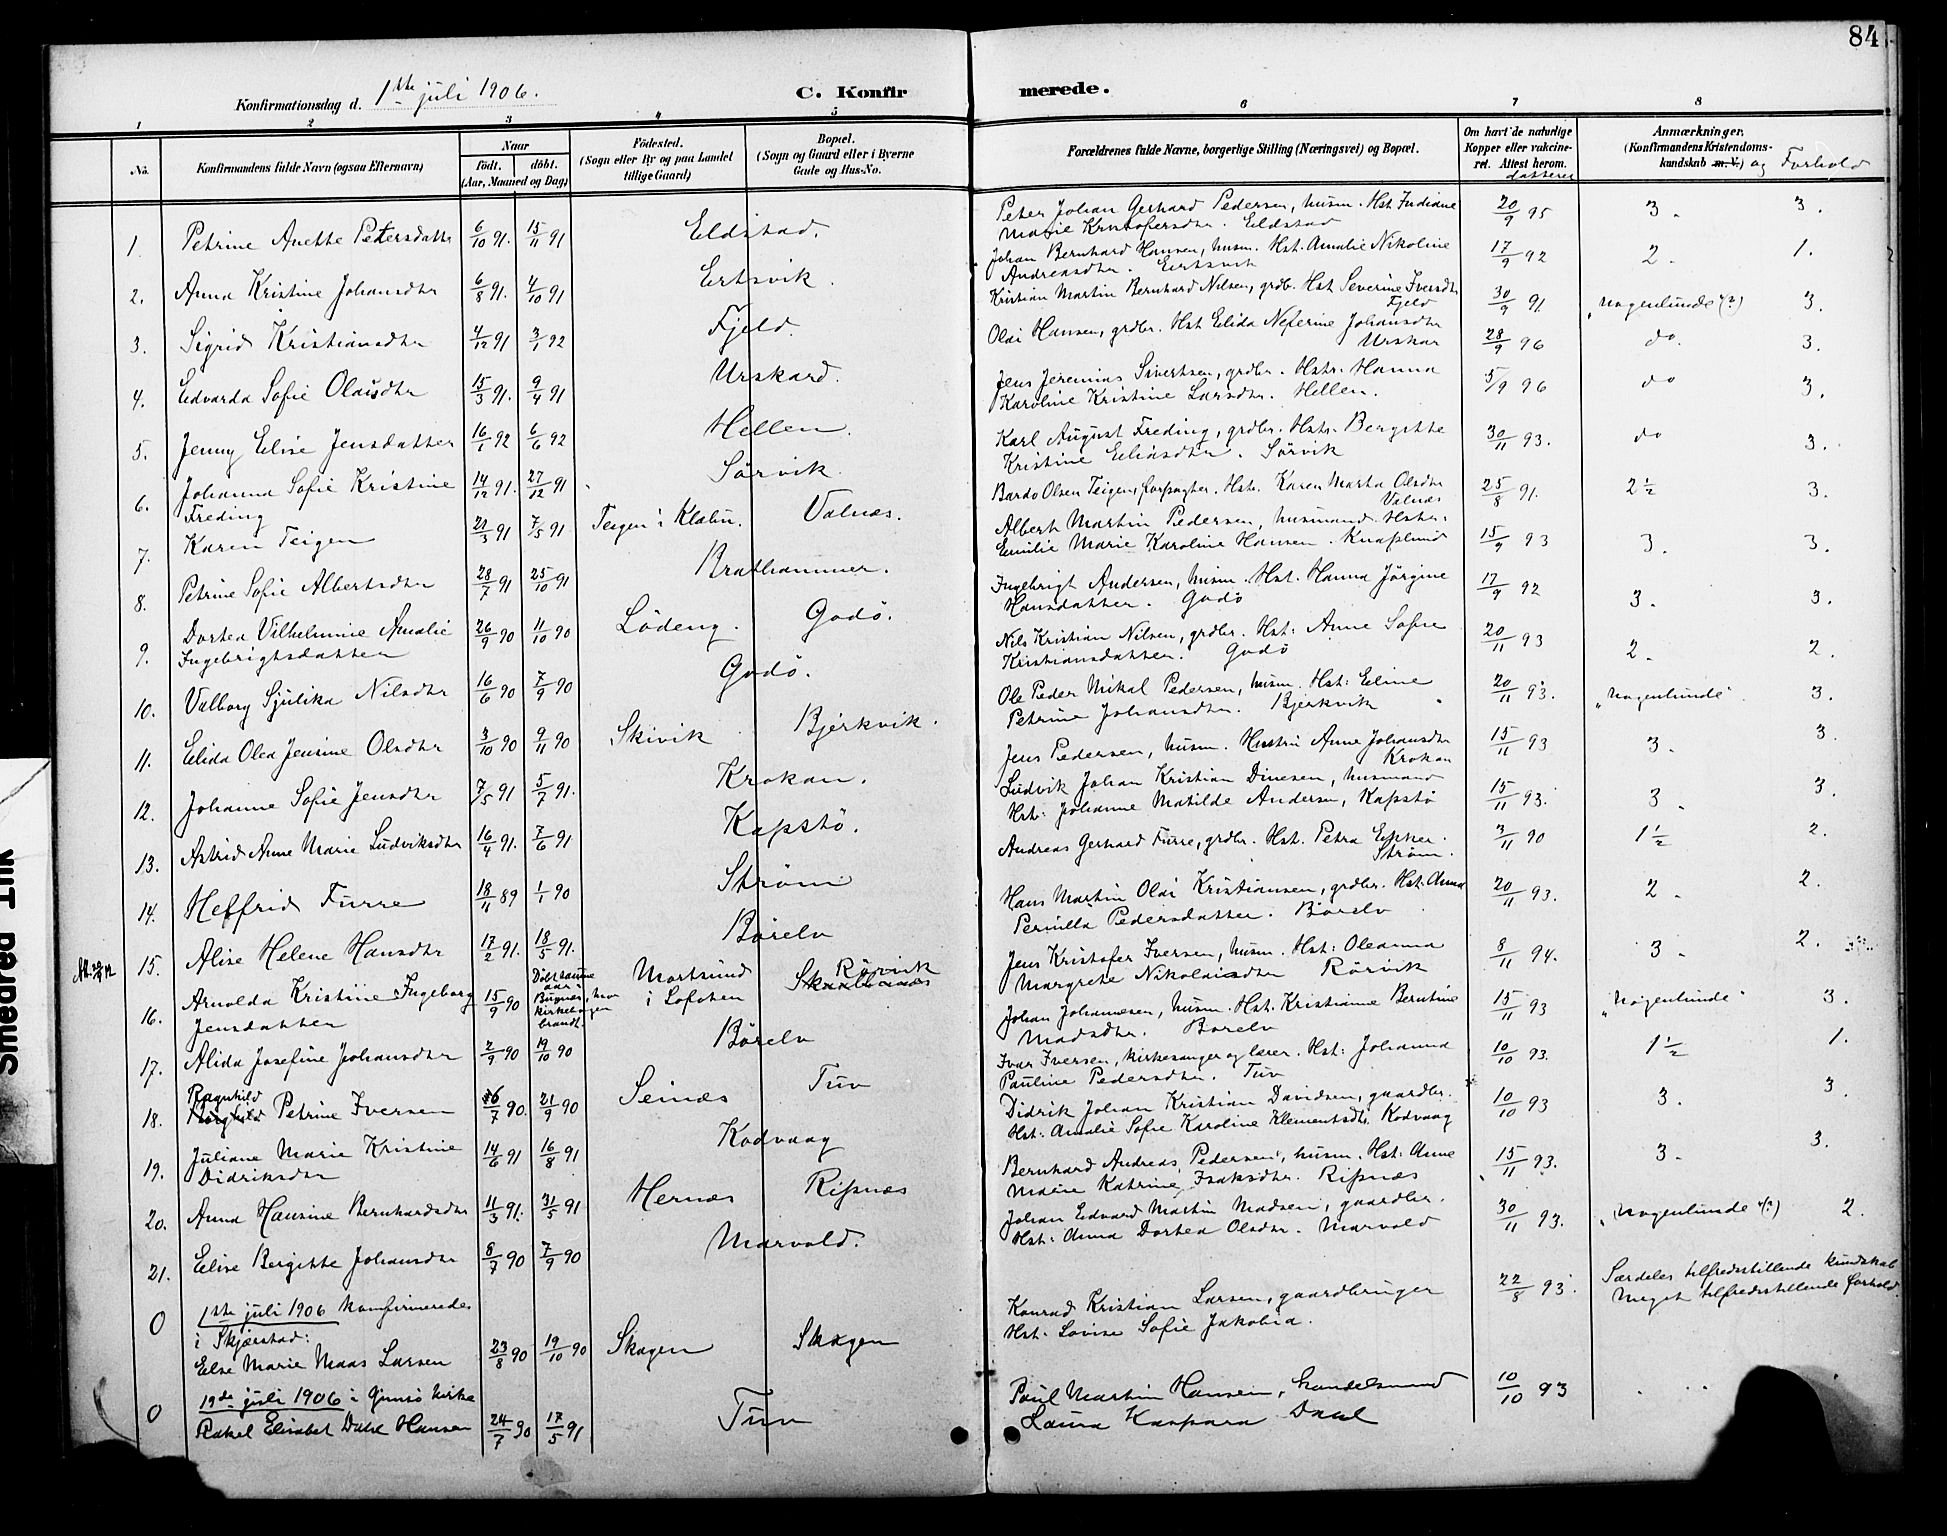 84
Konfirmationsdag d. 1ste juli 1906.
C. Konfirmerede.
1 2 3 4 5 6 7 8
No.
Konfirmandens fulde Navn (ogsaa Efternavn)
Naar
født. døbt.
(Aar, Maaned og Dag)
Födested.
(Sogn eller By og paa Landet
tillige Gaard)
Bopæl.
(Sogn og Gaard eller i Byerne
Gade og Hus-No.
Forældrenes fulde Navne, borgerlige Stilling (Næringsvei) og Bopæl.
Om havt de naturlige
Kopper eller vakcineret. Attest herom.
datteret
Anmærkninger,
(Konfirmandens Kristendomskundskab m. V.) og Forhold
1. Petrine Anette Petersdatter 6/10 91. 15/11 91 Eldstad. Peter Johan Gerhard Pedersen, husm. Hst Indiane
Marie Kristofersdtr. Eldstad 20/9 95 3. 3.
2. Anna Kristine Johansdtr 6/8 91. 4/10 91 Ertsvik. Johan Bernhard Hansen, husm. Hst. Amalie Nikoline
Andreasdtr. Ertsvik 17/9 92 2. 1.
3. Sigrid Kristiansdtr 4/12 91 3/1 92 Fjeld. Kristian Martin Bernhard Nilsen, grdbr. Hst Severine Iversdtr
Fjeld 30/9 91 "nogenlunde" (?) 3.
4. Edvarda Sofie Olaisdtr 15/3 91. 9/4 91 Urskard. Olai Hansen, grdbr. Hst Elida Neferine Johansdtr
Urskar 28/9 96 do. 3.
5. Jenny Elise Jensdatter 16/1 92 6/6 92 Hellen. Jens Jeremias Sivertsen, grdbr. Hstr. Hanna
Karoline Kristine Larsdtr. Hellen. 5/9 96 do 3.
6. Johanna Sofie Kristine
Freding 14/12 91. 27/12 91 Sørvik. Karl August Freding, grdbr. Hstr. Bergitte
Kristine Eliasdtr. Sørvik 30/11 93. do 3.
7. Karen Teigen 21/3 91 7/5 91 Teigen i Klæbu. Valnæs. Bardo Olsen Teigen, forpagter. Hstr. Karen Marta Olsdtr
Valnæs 25/8 91. 2 1/2 3.
8. Petrine Sofie Albertsdtr 28/7 91 25/10 91 Brathammer. Albert Martin Pedersen, husmand. Hstr:
Emilie Marie Karoline Hansen. Knaplund 15/9 93 3. 3.
9. Dortea Vilhelmine Amalie
Ingebrigtsdatter 26/9 90 11/10 90 Lödeng. Godö. Ingebrigt Andersen, husm. Hst. Hanna Jörgine
Hansdatter. Godö 17/9 92 3. 3.
10. Valborg Sjulika Nilsdtr 16/6 90 7/9 90 Godö. Nils Kristian Nilsen, grdbr. Hst: Anne Sofie
Kristiansdatter. Godö 20/11 93 2. 2.
11. Elida Olea Jensine Olsdtr 3/10 90 9/11 90 Skivik Bjerkvik. Ole Peder Mikal Pedersen, husm. Hst: Eline
Petrine Johansdtr. Bjerkvik 20/11 93. "nogenlunde" 3.
12. Johanne Sofie Jensdtr 7/5 91 5/7 91. Krokan. Jens Pedersen, husm. Hustru Anne Johansdtr
Krokan 15/11 93 3. 3.
13. Astrid Anne Marie Ludviksdtr 16/4 91. 7/6 91 Kapstö. Ludvik Johan Kristian Dinesen, husmand
Hst: Johanne Matilde Andersen, Kapstö 15/11 93. 3. 3.
14. Helfrid Furre 18/11 89 1/1 90 Strøm Andreas Gerhard Furre, grdbr. Hst. Petra
Strøm. 3/11 90 1 1/2 2.
15. Alise Helene Hansdtr 17/2 91. 18/5 91. Børelv Hans Martin Olai Kristiansen, grdbr. Hst: Anna
Pernilla Pedersdatter. Børelv 20/11 93. 2. 2.
16. Arnolda Kristine Ingeborg
Jensdatter 15/9 90 Döbt samme
aar i
hvor
kirkebogen
brandt. Mortsund
i Lofoten Rørvik Jens Kristofer Iversen, husm. Hst: Oleanna
Margrete Nikolaisdtr Rörvik 8/11 94. 3. 2.
17. Alida Josefine Johansdtr 2/9 90 19/10 90 Börelv Johan Johannesen, husm. Hst. Kristianne Berntine
Madsdtr. Börelv 15/11 93 "Nogenlunde" 3.
18. Ragnhild
Borghild Petrine Iversen 26/7 90. 21/9 90 Seinæs Tuv Ivar Iversen, kirkesanger og lærer. Hst: Johanna
Pauline Pedersdtr. Tuv 10/10 93. 1 1/2 1.
19. Juliane Marie Kristine
Didriksdtr 14/6 91 16/8 91 Kodvaag Didrik Johan Kristian Davidsen, gaardbr.
Hst: Amalie Sofie Karoline Klementsdtr. Kodvaag 10/10 93 3. 3.
20. Anna Hansine Bernhardsdtr 11/3 91. 31/5 91 Hernæs Ripnæs Bernhard Andreas Pedersen, husm. Hst: Anne
Marie Katrine Isaksdtr. Ripnæs 15/11 93. 3. 3.
21. Elise Bergitte Johansdtr 8/7 90 7/9 90 Marvold. Johan Edvard Martin Madsen, gaardbr.
Hst: Anna Dortea Olsdtr. Marvold 30/11 93. "Nogenlunde" (?) 2.
0 1ste juli 1906 konfirmeredes
i Skjerstad:
Else Marie Maas Larsen 23/8 90 19/10 90 Skagen Skagen Konrad Kristian Larsen, gaardbruger
Hst: Lovise Sofie Jakobia. 22/8 93. Særdeles tilfredsstillende kundskab
Meget tilfredsstillende forhold
0 19de juli 1906 i Gimsö kirke
Rakel Elisabet Dahl Hansen 24/7 90 17/5 91 Tuv Paul Martin Hansen, handelsmand
Laura Kaspara Dahl 10/10 93
Smedrød Trik